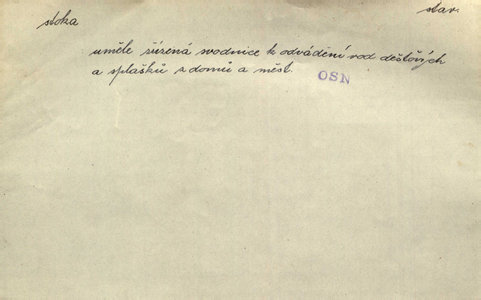 stoka
stav.
uměle zřízená vodnice k odvádění vod dešťových
a splašků z domů a měst.
OSN